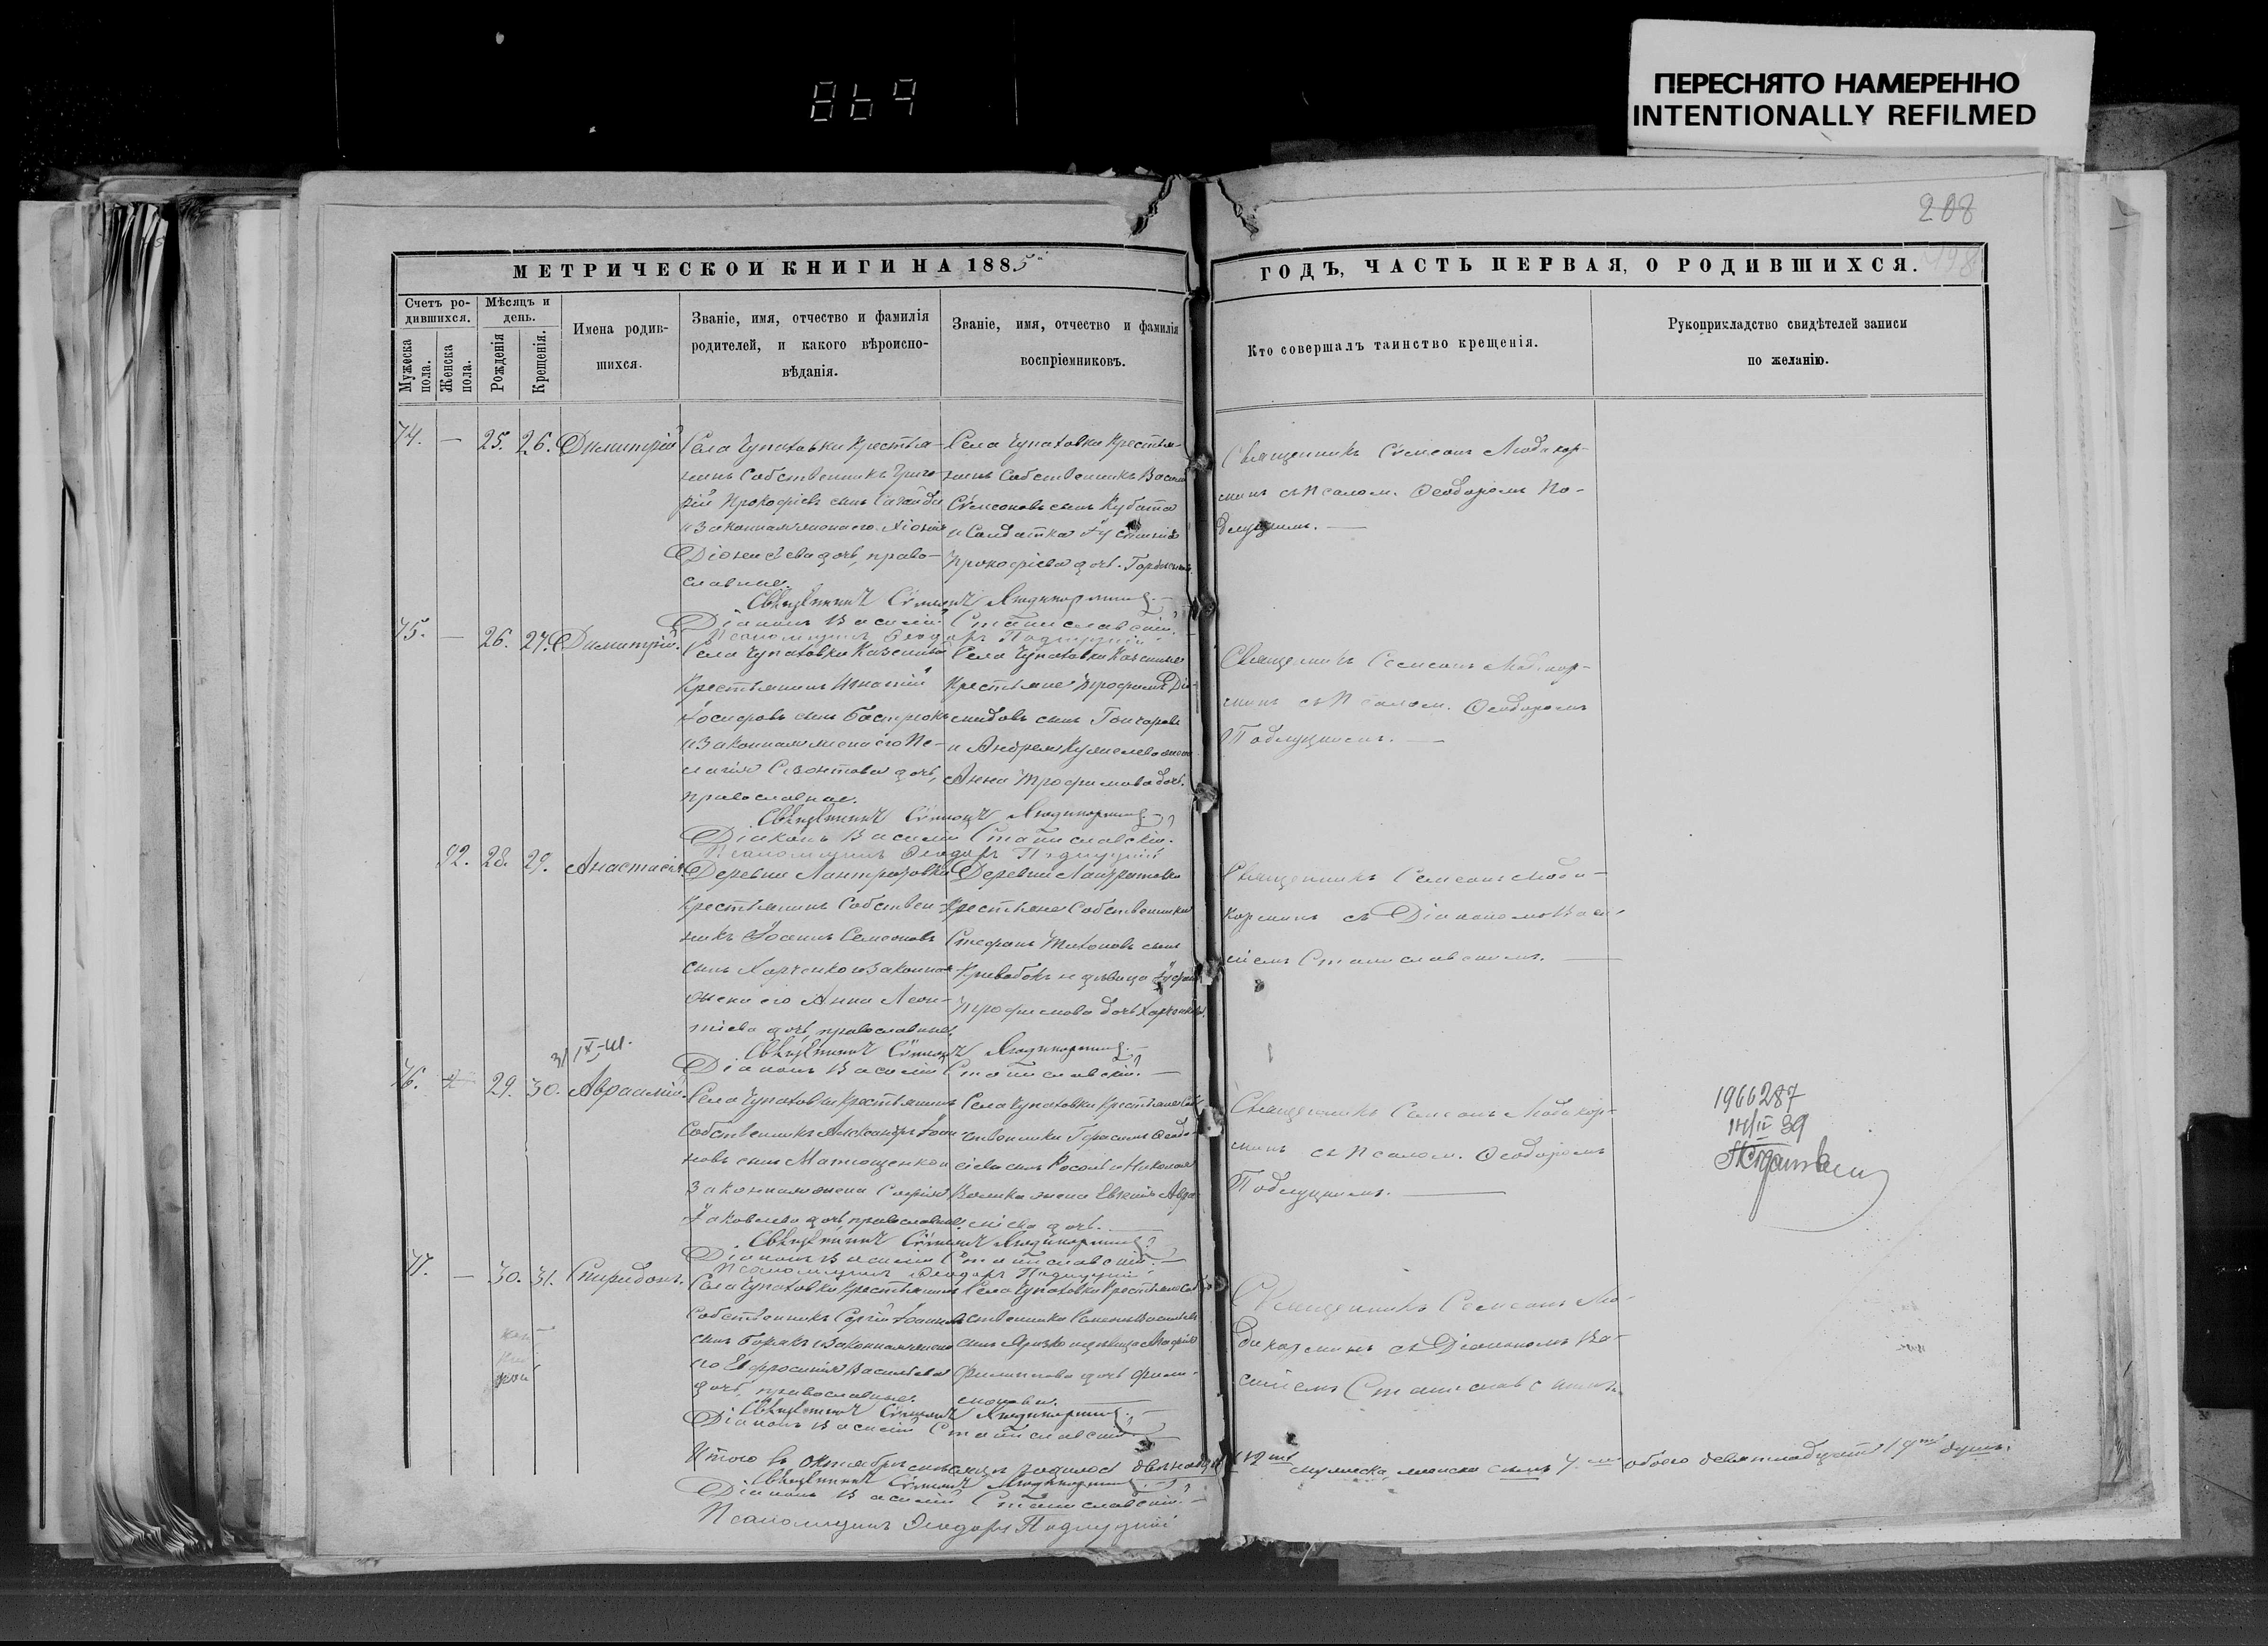 869
ПЕРЕСНЯТО НАМЕРЕННО
INTENTIONALLY REFILMED
208
198
МЕТРИЧЕСКОЙ КНИГИ НА 1885й
ГОДЪ, ЧАСТЬ ПЕРВАЯ, О РОДИВШИХСЯ.
Счетъ ро-
дившихся.
Мужеска пола.
Женска пола.
Мѣсяцъ и
день.
Рожденія
Крещенія.
Имена родив-
шихся.
Званіе, имя, отчество и фамилія
родителей, и какого вѣроиспо-
вѣданія.
Званіе, имя, отчество и фамилія
воспріемниковъ.
Кто совершалъ таинство крещенія.
Рукоприкладство свидѣтелей записи
по желанію.
74. — 25. 26. Димитрій
Села Чупаховки Крестья-
нинъ Собственникъ Григо-
рій Прокофіевъ сынъ
и законная жена его
Діонисіева дочь, право-
славные.
Села Чупаховки Крестья-
нинъ Собственникъ Васил
Сѵмеоновъ сынъ Кубата
и Солдатка Іустинія
Прокофіева дочь
Священникъ Сѵмеонъ Людикор-
минъ съ псалом. Ѳеодоромъ По-
длуцкимъ. —
Священникъ Сѵмеонъ Людикорминъ. —
Діаконъ Василій Станиславскій. —
Псаломщикъ Ѳеодоръ Подлуцкій
75. — 26. 27. Димитрій.
Села Чупаховки Казенный
Крестьянинъ Игнатій
Іосифовъ сынъ Бастрюкъ
и законная жена его Пе-
лагія Леонтова дочь,
православные.
Села Чупаховки Казенные
Крестьяне Трофимъ Діо-
мидовъ сынъ Гончаровъ
и Андрея жена
Анна Трофимова дочь.
Священникъ Сѵмеонъ Людикор-
минъ съ Псалом. Ѳеодоромъ
Подлуцкимъ. —
Священникъ Сѵмеонъ Людикорминъ. —
Діаконъ Василій Станиславскій. —
Псаломщикъ Ѳеодоръ Подлуцкій
92. 28. 29. Анастасія.
Деревни Лантратовки
Крестьянинъ Собствен-
никъ Іоаннъ Семеоновъ
сынъ Харченко и законная
жена его Анна Леон-
тіева дочь, православные.
Деревни Лантратовки
Крестьяне Собственники
Стефанъ Тихоновъ сынъ
Кривобокъ и дѣвица
Трофимова дочь Харченкова.
Священникъ Семеонъ Люди-
корминъ съ Діакономъ Васи-
ліемъ Станиславскимъ. —
Священникъ Сѵмеонъ Людикорминъ. —
Діаконъ Василій Станиславскій. —
76. 29. 30. Авраамій.
Села Чупаховки Крестьянинъ
Собственникъ Александръ Іоан
новъ сынъ Матющенко и
Законная жена Софія
Іаковлева дочь, православные.
Села Чупаховки Крестьяне Соб
ственники Герасимъ Ѳеодо-
сіевъ сынъ и Николая
Волика жена Евгенія Авра-
міева дочь. —
Священникъ Семеонъ Людикор-
минъ съ Псалом. Ѳеодоромъ
Подлуцкимъ. —
1966287
39
Священникъ Сѵмеонъ Людикорминъ
Діаконъ Василій Станиславскій. —
Псаломщикъ Ѳеодоръ Подлуцкій
77. — 30. 31. Спиридонъ.
Села Чупаховки Крестьянинъ
Собственникъ Сергій Іоанновъ
сынъ и законная жена
его Евфросинія Васильева
дочь, православные.
Села Чупаховки Крестьяне Соб
ственники Василіевъ
сынъ и дѣвица
Филиппова дочь Фили-
монова.
Священникъ Семеонъ Лю-
дикорминъ съ Діакономъ Ва-
силіемъ Станиславскимъ
Священникъ Сѵмеонъ Людикорминъ. —
Діаконъ Василій Станиславскій —
Итого въ Октябрѣ мѣсяцѣ родилось двѣнадцать 12ть мужеска, женска семь 7мь обоего девятнадцать 19ть душъ.
Священникъ Сѵмеонъ Людикорминъ. —
Діаконъ Василій Станиславскій. —
Псаломщикъ Ѳеодоръ Подлуцкій